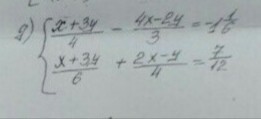 2) { (x+3y)/4 - (4x-2y)/3 = -1 1/6
(x+3y)/6 + (2x-y)/4 = 7/12